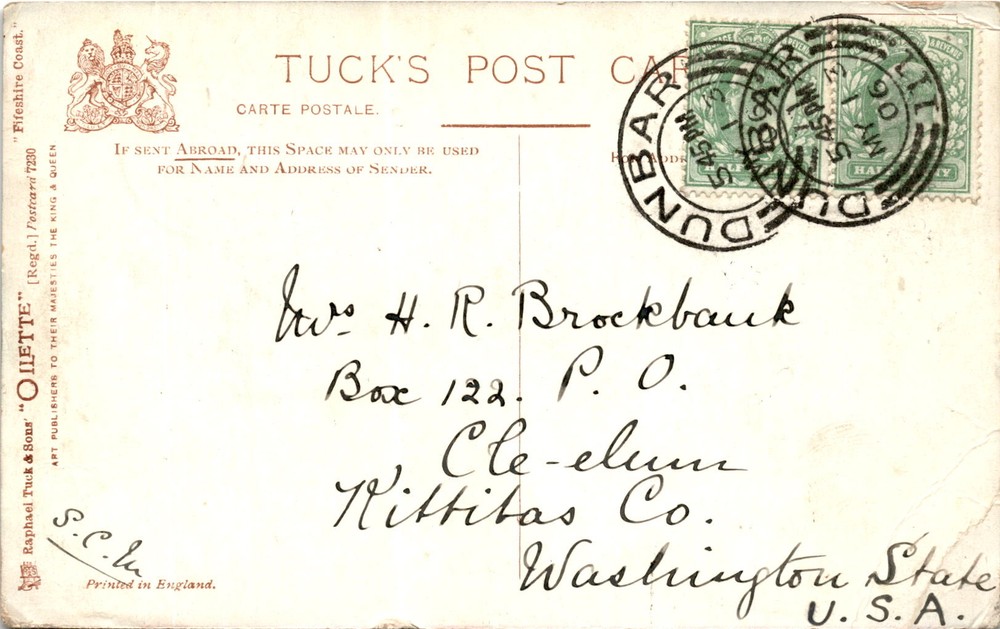 TUCK'S POST CAR
CARTE POSTALE.
IF SENT ABROAD, THIS SPACE MAY ONLY BE USED
FOR NAME AND ADDRESS OF SENDER.
FOR ADDR
DUNBAR
5 45PM
MY 1
DUNBAR
5 45PM
MY 1
06
HALF
Mrs H. R. Brockbank
Box 122. P. O.
Cle-elum
Kittitas Co.
Washington State
U. S. A.
S. C. M
Printed in England.
Raphael Tuck & Sons' "OILETTE" [Regd.] Postcard 7230 "Fifeshire Coast."
ART PUBLISHERS TO THEIR MAJESTIES THE KING & QUEEN